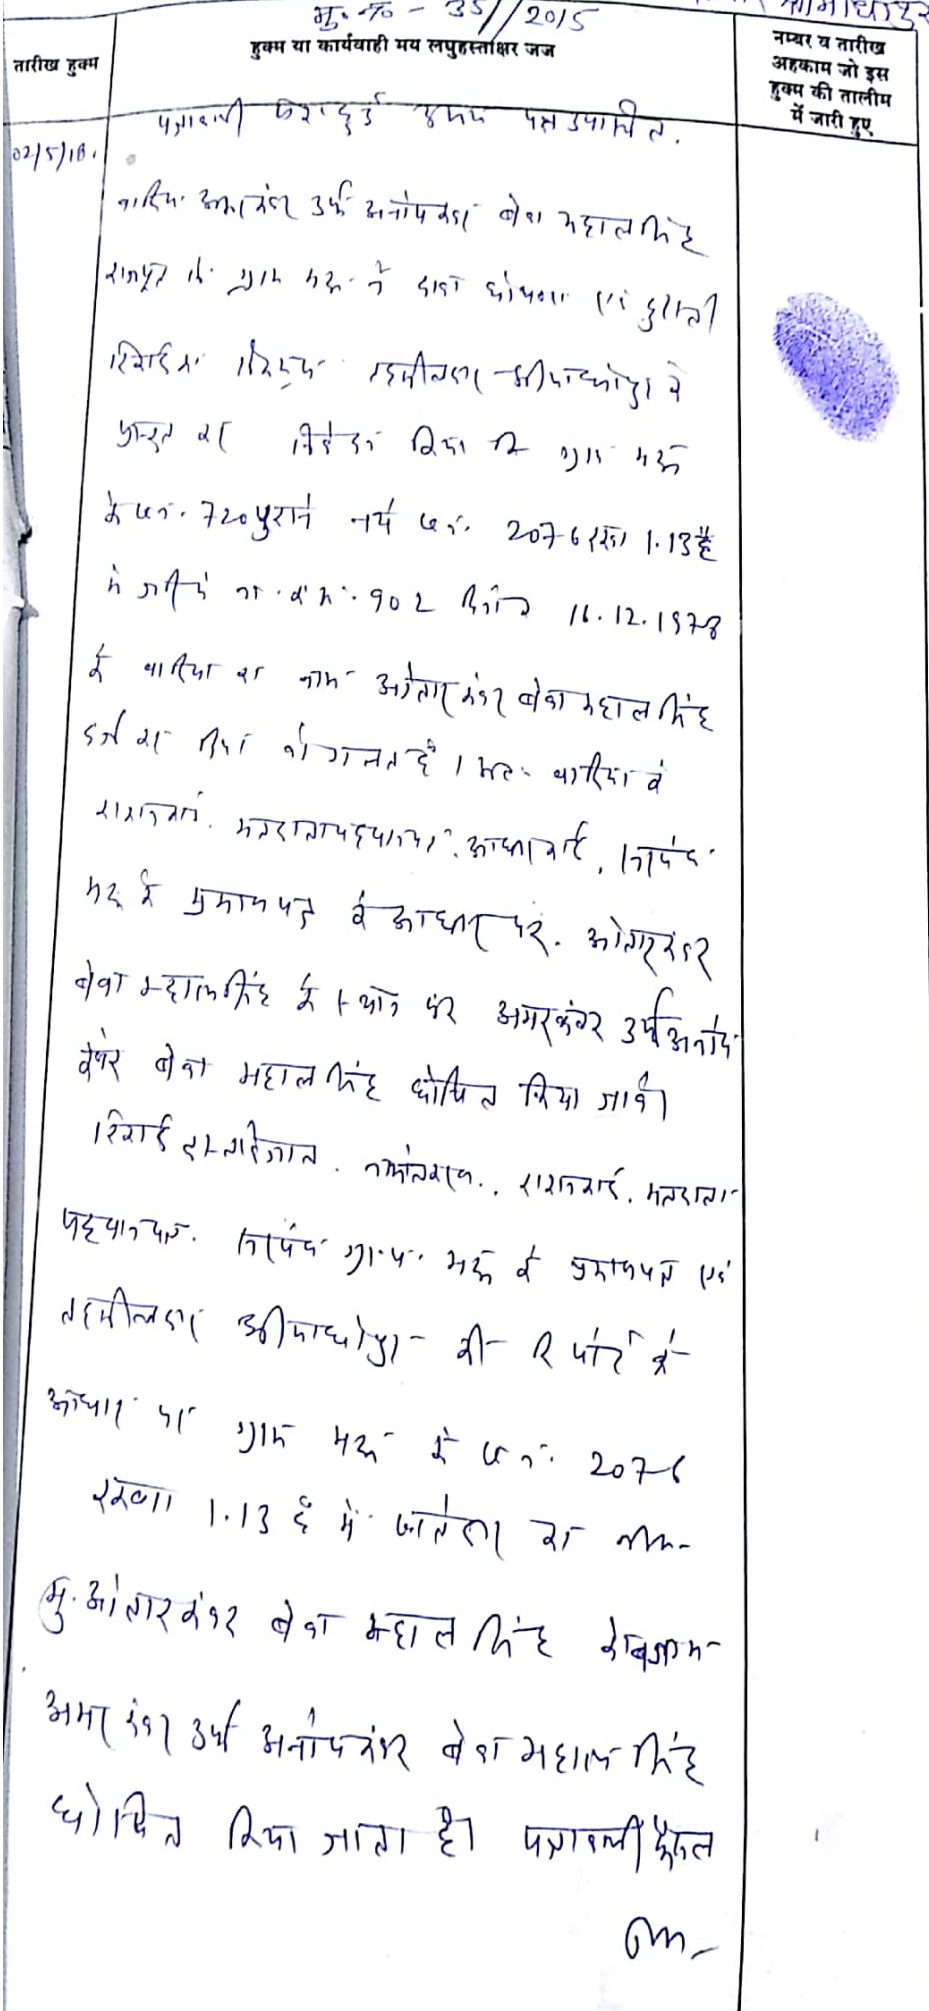 मु. न० - 35//2015
तारीख हुक्म
हुक्म या कार्यवाही मय लघुहस्ताक्षर जज
नम्बर व तारीख
अहकाम जो इस
हुक्म की तालीम
में जारी हुए
02/5/18.
पत्रावली पेश हुई उभय पक्ष उपस्थित.
वादिया अमरकंवर उर्फ अनोपकंवर बेवा महालसिंह
राजपूत ग्राम ने दावा घोषणा एवं दुरुस्ती
रिकार्ड का विरूद्ध तहसीलदार श्रीमाधोपुर के
प्रस्तुत कर निवेदन किया कि ग्राम
के ख.न. 720 पुराने नये ख.न. 2076 रकबा 1.13 है
मे जरिये ना. 902 दिनांक 16.12.1978
के वादिया का नाम ओतारकंवर बेवा महालसिंह
दर्ज कर दिया जो गलत है। अतः वादिया के
राशनकार्ड. मतदाता पहचान पत्र. आधार कार्ड, सरपंच
के प्रमाण पत्र के आधार पर. ओतारकंवर
बेवा महालसिंह के स्थान पर अमरकंवर उर्फ अनोप
कंवर बेवा महालसिंह घोषित किया जावे।
रिकार्ड दस्तावेजात. नामांतकरण., राशनकार्ड. मतदाता
पहचान पत्र. सरपंच ग्रा.प. के प्रमाण पत्र एवं
तहसीलदार श्रीमाधोपुर की रिपोर्ट के
आधार पर ग्राम के ख न. 2076
रकबा 1.13 है मे खातेदार का नाम
मु. ओतारकंवर बेवा महालसिंह के बजाय
अमरकंवर उर्फ अनोपकंवर बेवा महालसिंह
घोषित किया जाता है। पत्रावली फैसल